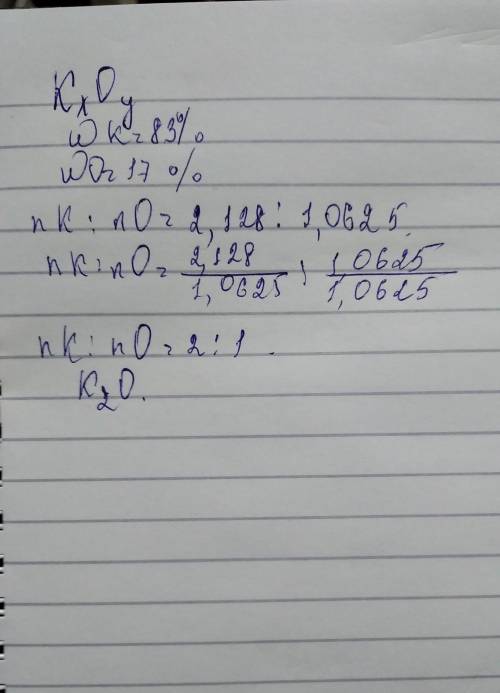 KxOy
ω K = 83%
ωO = 17 %
nK : nO = 2,128 : 1,0625.
nK : nO = 2,128/1,0625 : 1,0625/1,0625
nK : nO = 2 : 1.
K2O.